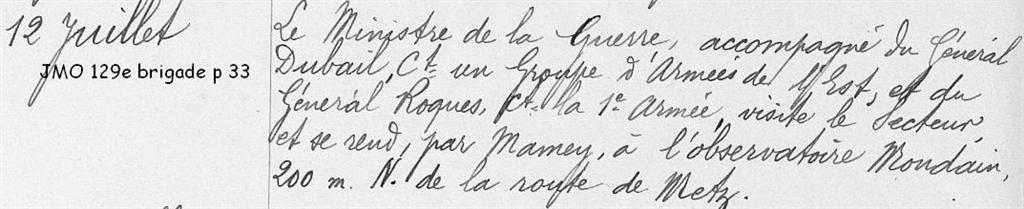 12 Juillet
JMO 129e brigade p 33
Le Ministre de la Guerre, accompagné du Général
Dubail, Ct un Groupe d'Armées de l'Est, et du
Général Roques, Ct la 1e Armée, visite le Secteur,
et se rend, par Mamey, à l'observatoire Mondain,
200 m. N. de la route de Metz.